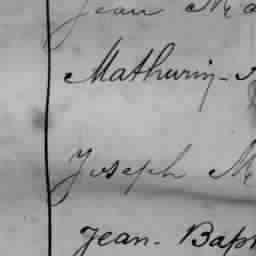 Jean Ma
Mathurin-J
Joseph M
Jean-Bap